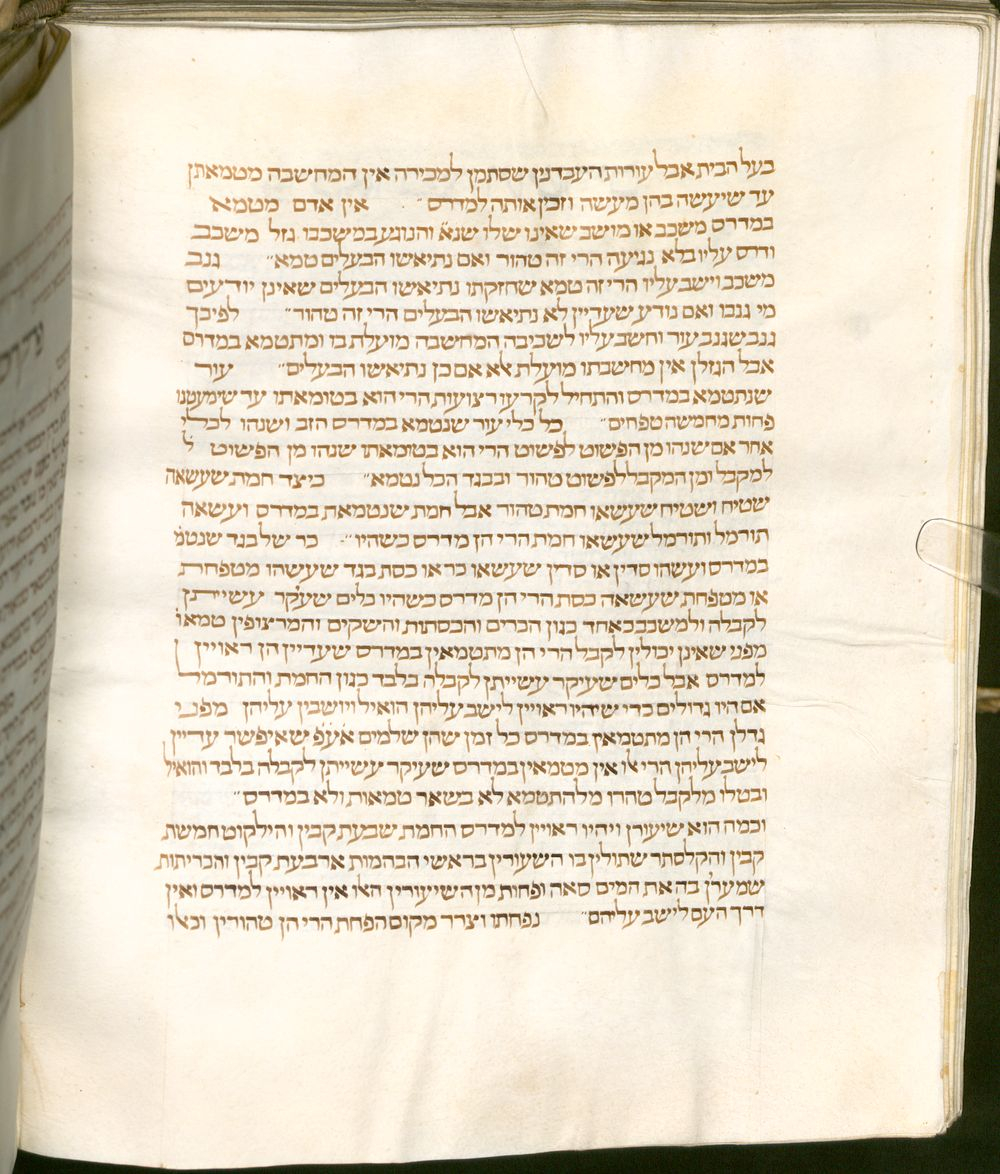 בעל הבית אבל עורות העבדנין שסתמן למכירה אין המחשבה מטמאתן
עד שיעשה בהן מעשה וזכין אותה למדרס ״ אין אדם מטמא
במדרס משכב או מושב שאינו שלו שנא׳ והנוגע במשכבו גזל משכב
ודרס עליו בלא נגיעה הרי זה טהור ואם נתיאשו הבעלים טמא ״ גנב
משכב וישב עליו הרי זה טמא שחזקתו נתיאשו הבעלים שאינן יודעים
מי גנבו ואם נודע שעדיין לא נתיאשו הבעלים הרי זה טהור ״ לפיכך
גנב שגנב עור וחשב עליו לשכיבה המחשבה מועלת בו ומתטמא במדרס
אבל הגזלן אין מחשבתו מועלת לא אם כן נתיאשו הבעלים ״ עור
שנתטמא במדרס והתחיל לקרעו רצועות הרי הוא בטומאתו עד שימעטנו
פחות מחמשה טפחים ״ כל כלי עור שנטמא במדרס הזב ושנהו לכלי
אחר אם שנהו מן הפשוט לפשוט הרי הוא בטומאתו שנהו מן הפשוט ל
למקבל ומן המקבל לפשוט טהור ובבגד הכל נטמא ״ כיצד חמת שעשאה
שטיח ושטיח שעשאו חמת טהור אבל חמת שנטמאת במדרס ועשאה
תורמל ותורמל שעשאו חמת הרי הן מדרס כשהיו ״ כר של בגד שנטמ
במדרס ועשהו סדין או סדין שעשאו כר או כסת בגד שעשהו מטפחת
או מטפחת שעשאה כסת הרי הן מדרס כשהיו כלים שעקר עשייתן
לקבלה ולמשכב כאחד כגון הכרים והכסתות והשקים והמרצופין טמאו
מפני שאינן יכולין לקבל הרי הן מתטמאין במדרס שעדיין הן ראויין
למדרס אבל כלים שעיקר עשייתן לקבלה בלבד כגון החמת והתורמל
אם היו גדולים כדי שיהיו ראויין לישב עליהן הואיל ויושבין עליהן מפני
גדלן הרי הן מתטמאין במדרס כל זמן שהן שלמים אעפ שאיפשר עדיין
לישב עליהן הרי לו אין מטמאין במדרס שעיקר עשייתן לקבלה בלבד והואיל
ובטלו מלקבל טהרו מלהתטמא לא בשאר טמאות ולא במדרס ״
וכמה הוא שיעורן ויהיו ראויין למדרס החמת שבעת קבין והילקוט חמשת
קבין והקלסתר שתולין בו השעורין בראשי הבהמות ארבעת קבין והכריתות
שמערין בה את המים סאה ופחות מן השיעורין האלו אין ראויין למדרס ואין
דרך העם לישב עליהם ״ נפחתו וצרר מקום הפחת הרי הן טהורין וכאלו